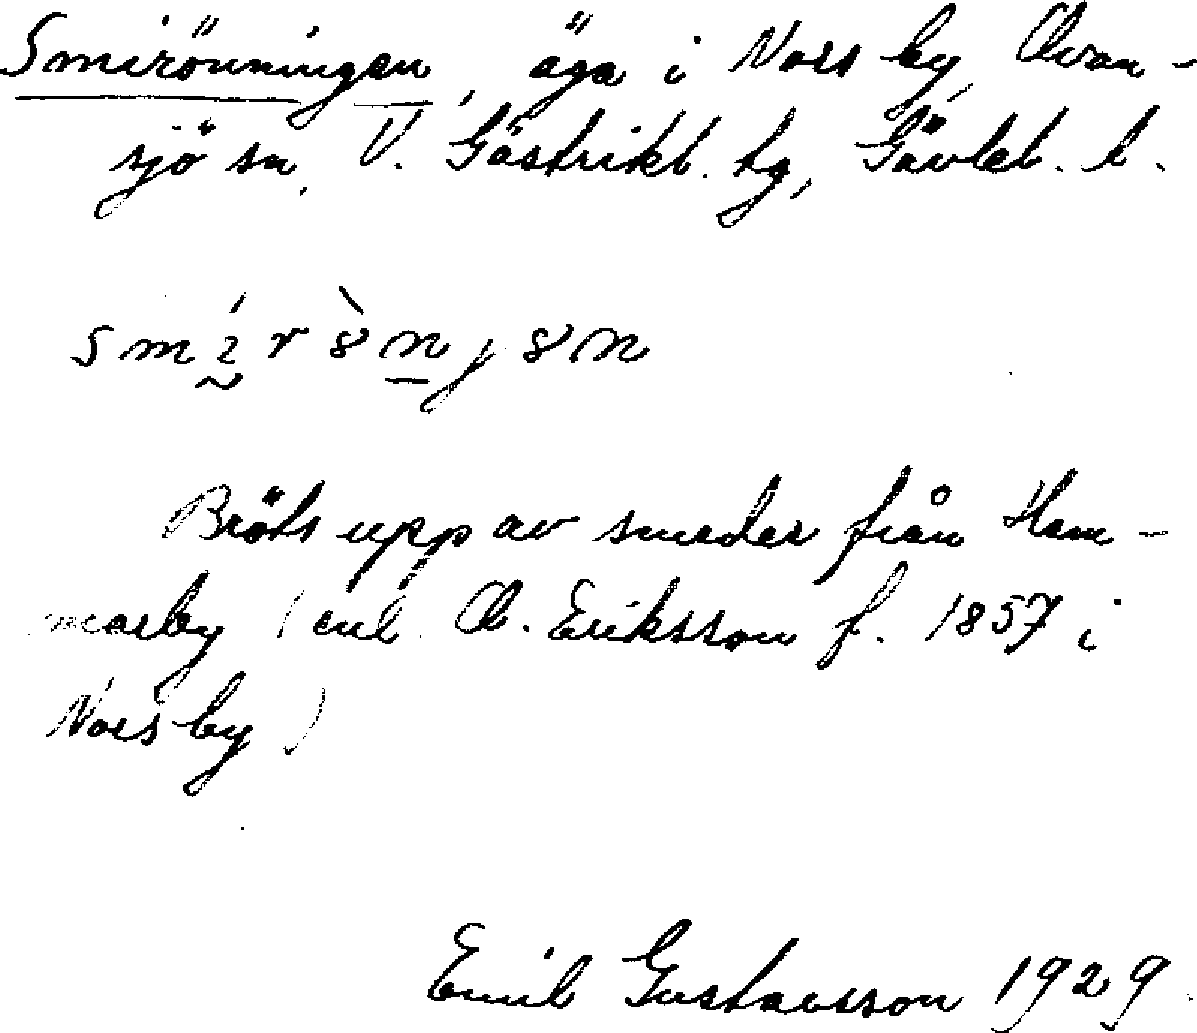 Smiröningen, äga i Nors by, Ovan-
sjö sn, V. Gästrikl. tg, Gävleb. l.
Bröts upp av smeder från Ham-
marby (enl. O. Eriksson f. 1857 i
Nors by)
Emil Gustavsson 1929.